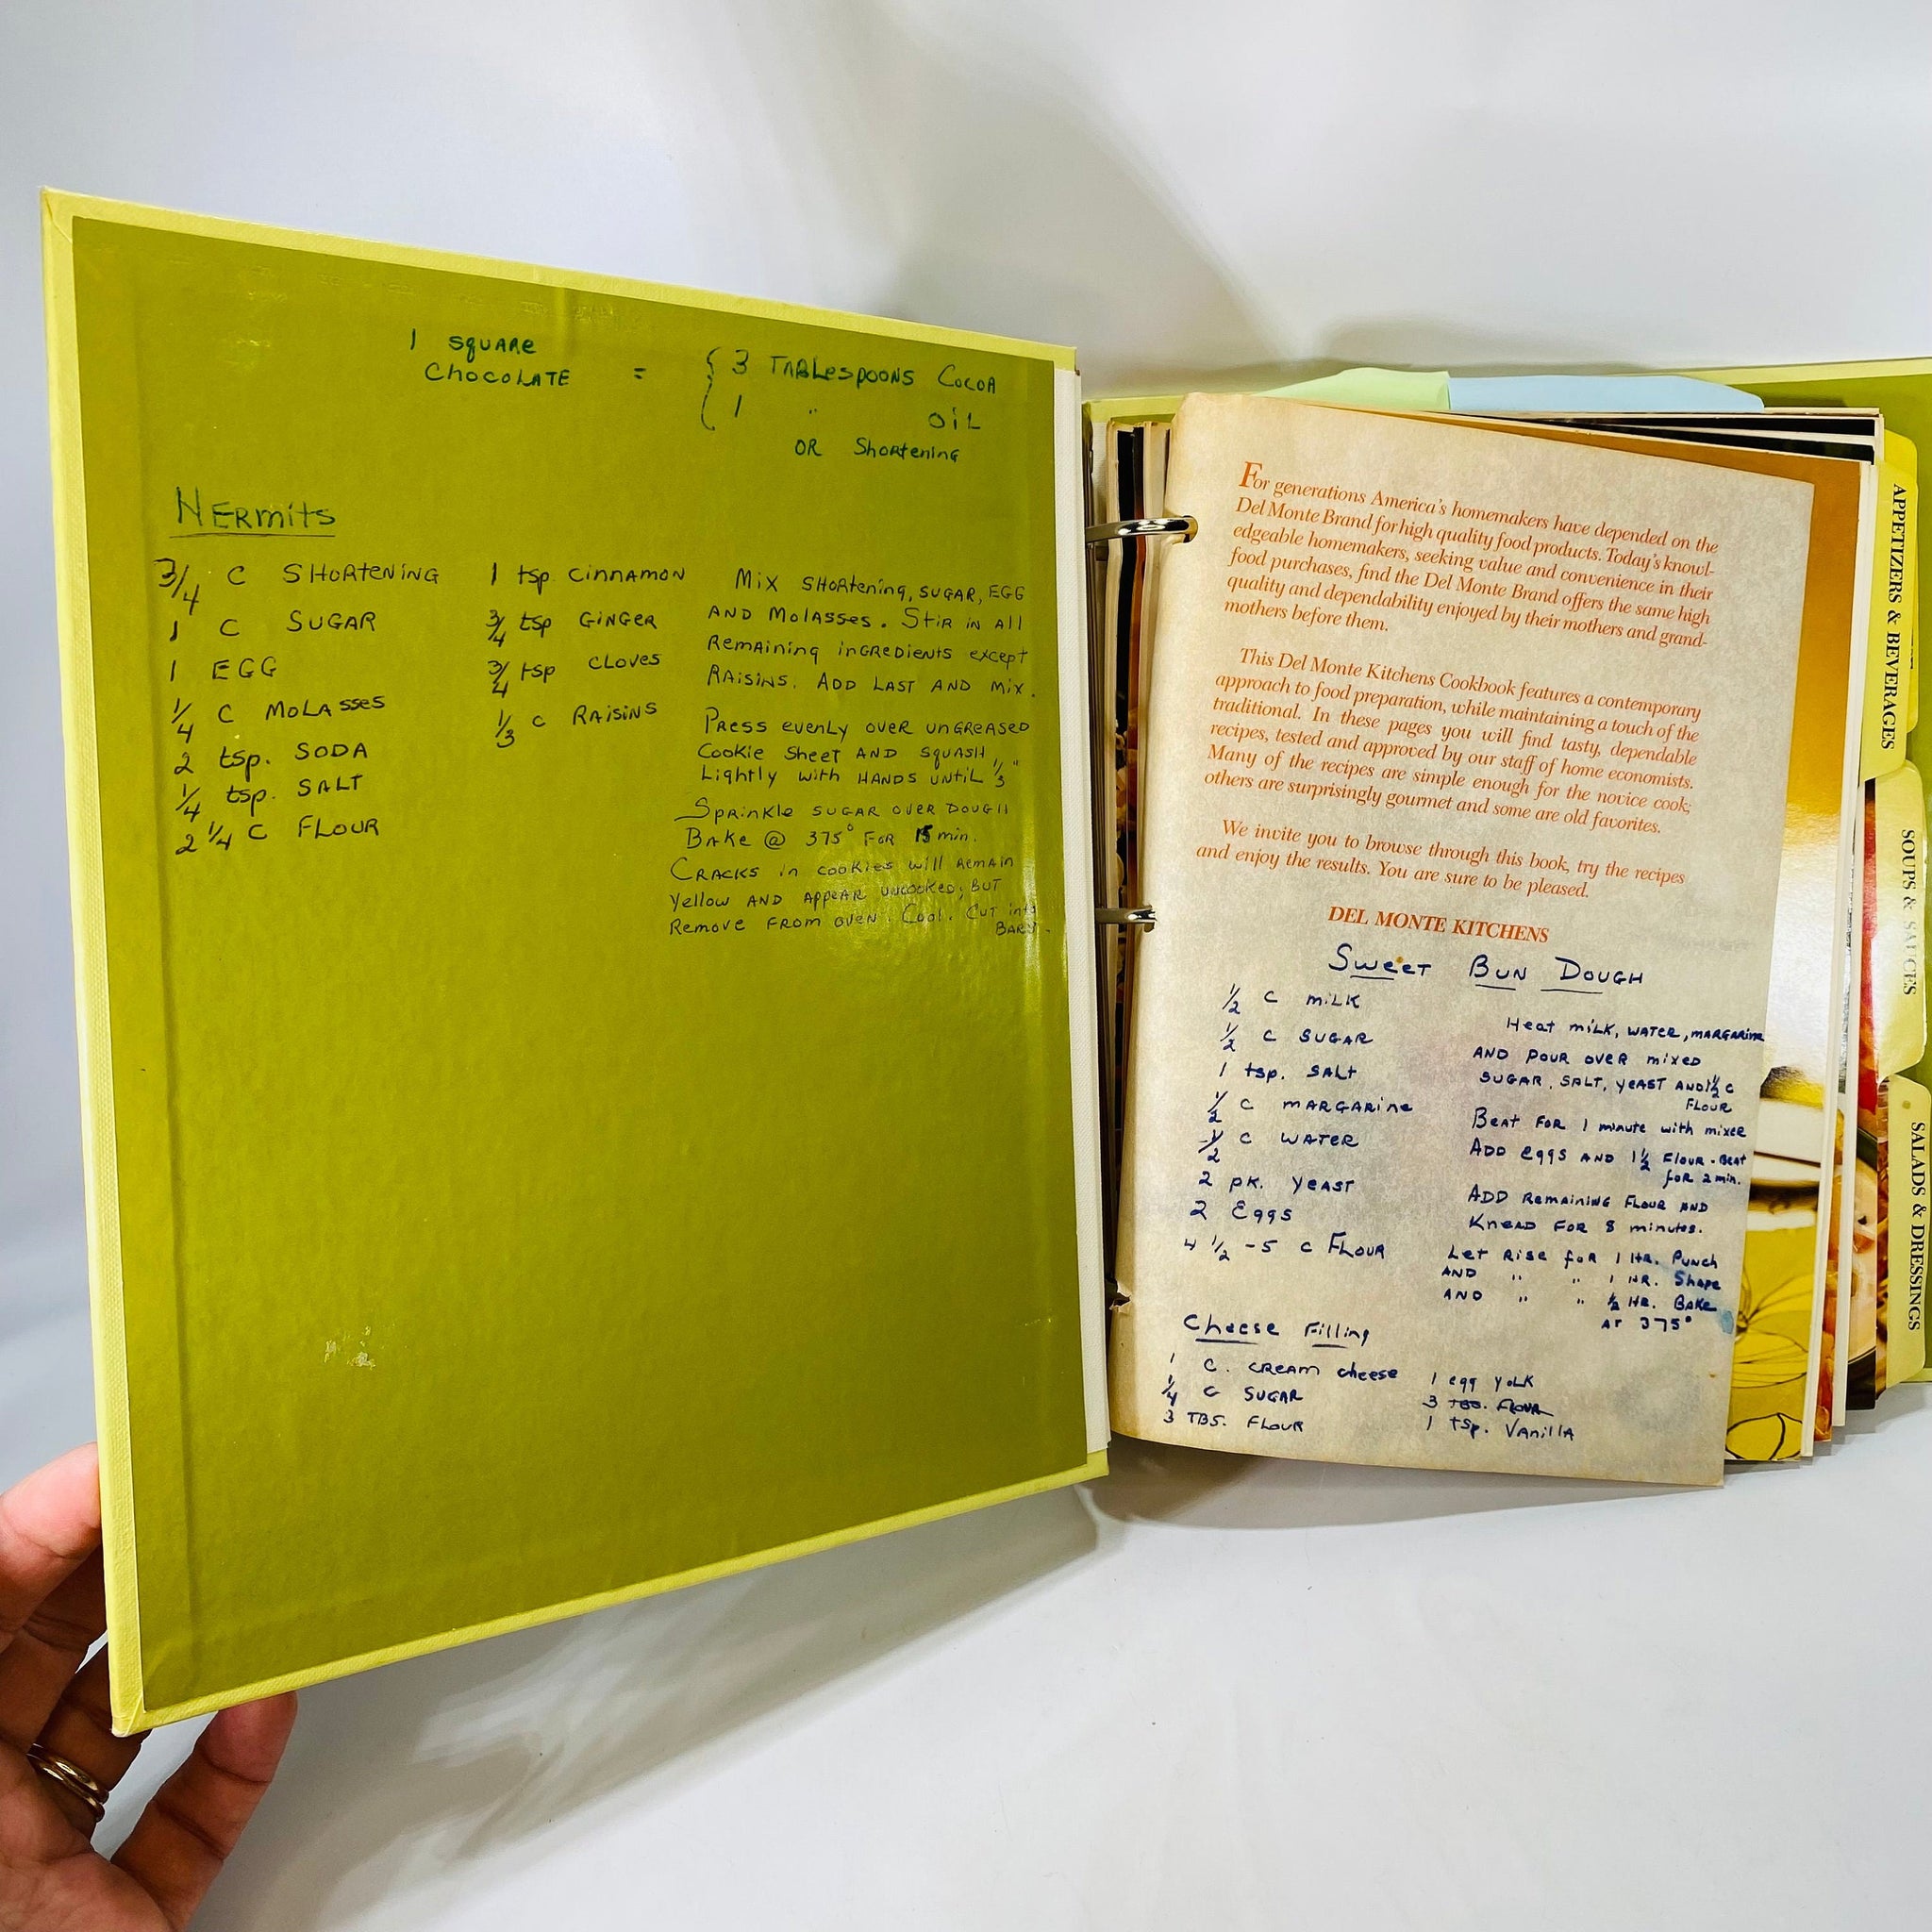 1 square
Chocolate = { 3 Tablespoons Cocoa
1 " Oil
or Shortening
Hermits
3/4 c Shortening
1 c Sugar
1 Egg
1/4 c Molasses
2 tsp. Soda
1/4 tsp. Salt
2 1/4 c Flour
1 tsp Cinnamon
3/4 tsp Ginger
3/4 tsp Cloves
1/3 c Raisins
Mix Shortening, Sugar, Egg
and Molasses. Stir in all
Remaining ingredients except
Raisins. Add last and mix.
Press evenly over ungreased
Cookie Sheet and squash
Lightly with hands until 1/3"
Sprinkle sugar over dough
Bake @ 375° for 15 min.
Cracks in cookies will remain
Yellow and appear uncooked, but
Remove from oven. Cool. Cut into
Bars.
For generations America's homemakers have depended on the
Del Monte Brand for high quality food products. Today's knowl-
edgeable homemakers, seeking value and convenience in their
food purchases, find the Del Monte Brand offers the same high
quality and dependability enjoyed by their mothers and grand-
mothers before them.
This Del Monte Kitchens Cookbook features a contemporary
approach to food preparation, while maintaining a touch of the
traditional. In these pages you will find tasty, dependable
recipes, tested and approved by our staff of home economists.
Many of the recipes are simple enough for the novice cook;
others are surprisingly gourmet and some are old favorites.
We invite you to browse through this book, try the recipes
and enjoy the results. You are sure to be pleased.
DEL MONTE KITCHENS
Sweet Bun Dough
1/2 c milk
1/2 c sugar
1 tsp. salt
1/2 c margarine
1/2 c water
2 pk. yeast
2 Eggs
4 1/2 - 5 c Flour
Heat milk, water, margarine
and pour over mixed
sugar, salt, yeast and 1 1/2 c
flour
Beat for 1 minute with mixer
Add eggs and 1 1/2 Flour - Beat
for 2 min.
Add remaining flour and
Knead for 8 minutes.
Let rise for 1 Hr. Punch
and " " 1 Hr. Shape
and " " 1/2 Hr. Bake
at 375°
Cheese Filling
1 c. cream cheese
1/4 c sugar
3 TBS. Flour
1 egg yolk
3 TBS. Flour
1 tsp. Vanilla
APPETIZERS & BEVERAGES
SOUPS & SAUCES
SALADS & DRESSINGS